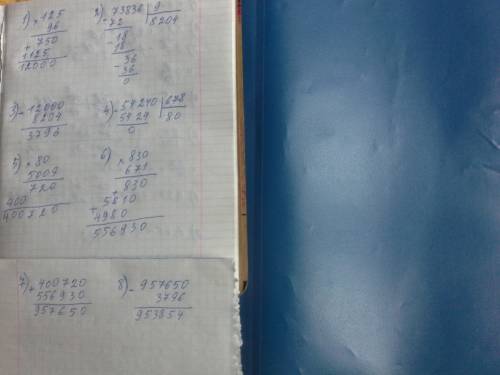 1) × 125
96
+ 750
1125
12000
2) 73836 | 9
- 72 | 8204
- 18
18
- 36
- 36
0
3) - 12000
8204
3796
4) - 54240 | 678
5424 | 80
0
5) × 80
5009
720
400
400720
6) × 830
671
830
+ 5810
+ 4980
556930
7) + 400720
556930
957650
8) - 957650
3796
953854